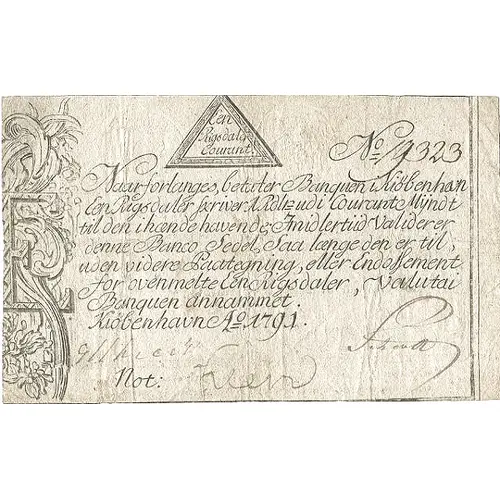 Een
Rigsdaler
Courant
No/4323
Naar forlanges, betaler Banquen i Kiöbenhavn
Een Rigsdaler skriver 1 Rdlr udi Courante Myndt
til den ihænde havende; Imidlertid Validerer
denne Banco Sedel, Saa længe den er til,
uden videre Paategning, eller Endossement
for ovenmelte Een Rigsdaler, Valuta i
Banquen annammet.
Kiöbenhavn Ao. 1791.
Not: